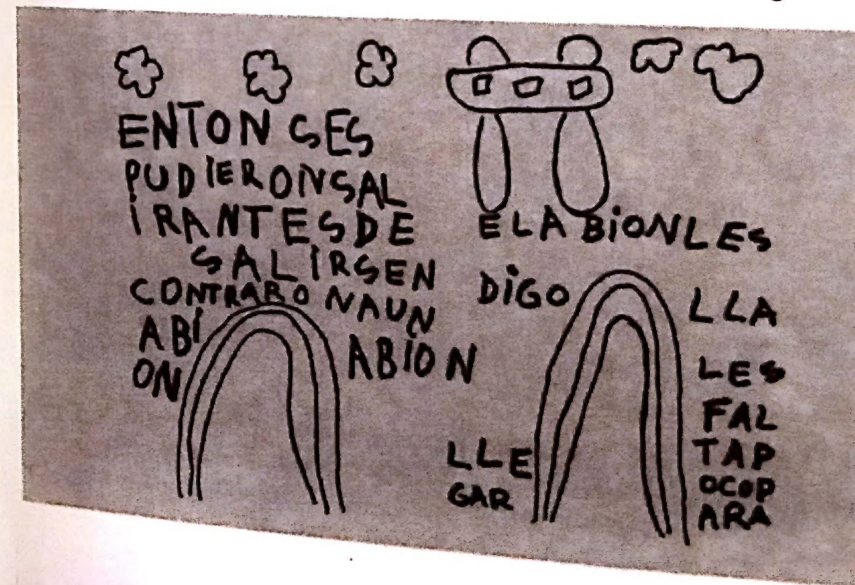 ENTONSES
PUDIERONSAL
IRANTESDE
SALIRSEN
CONTRARONAUN
ABI
ON
ABION
ELABIONLES
DIGO
LLA
LES
FAL
TAP
OCOP
ARA
LLE
GAR